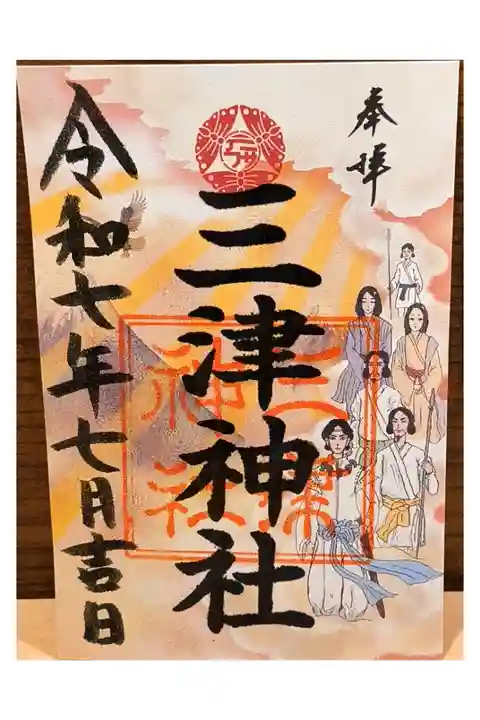 奉拝
三津神社
三津
神社
令和七年七月吉日